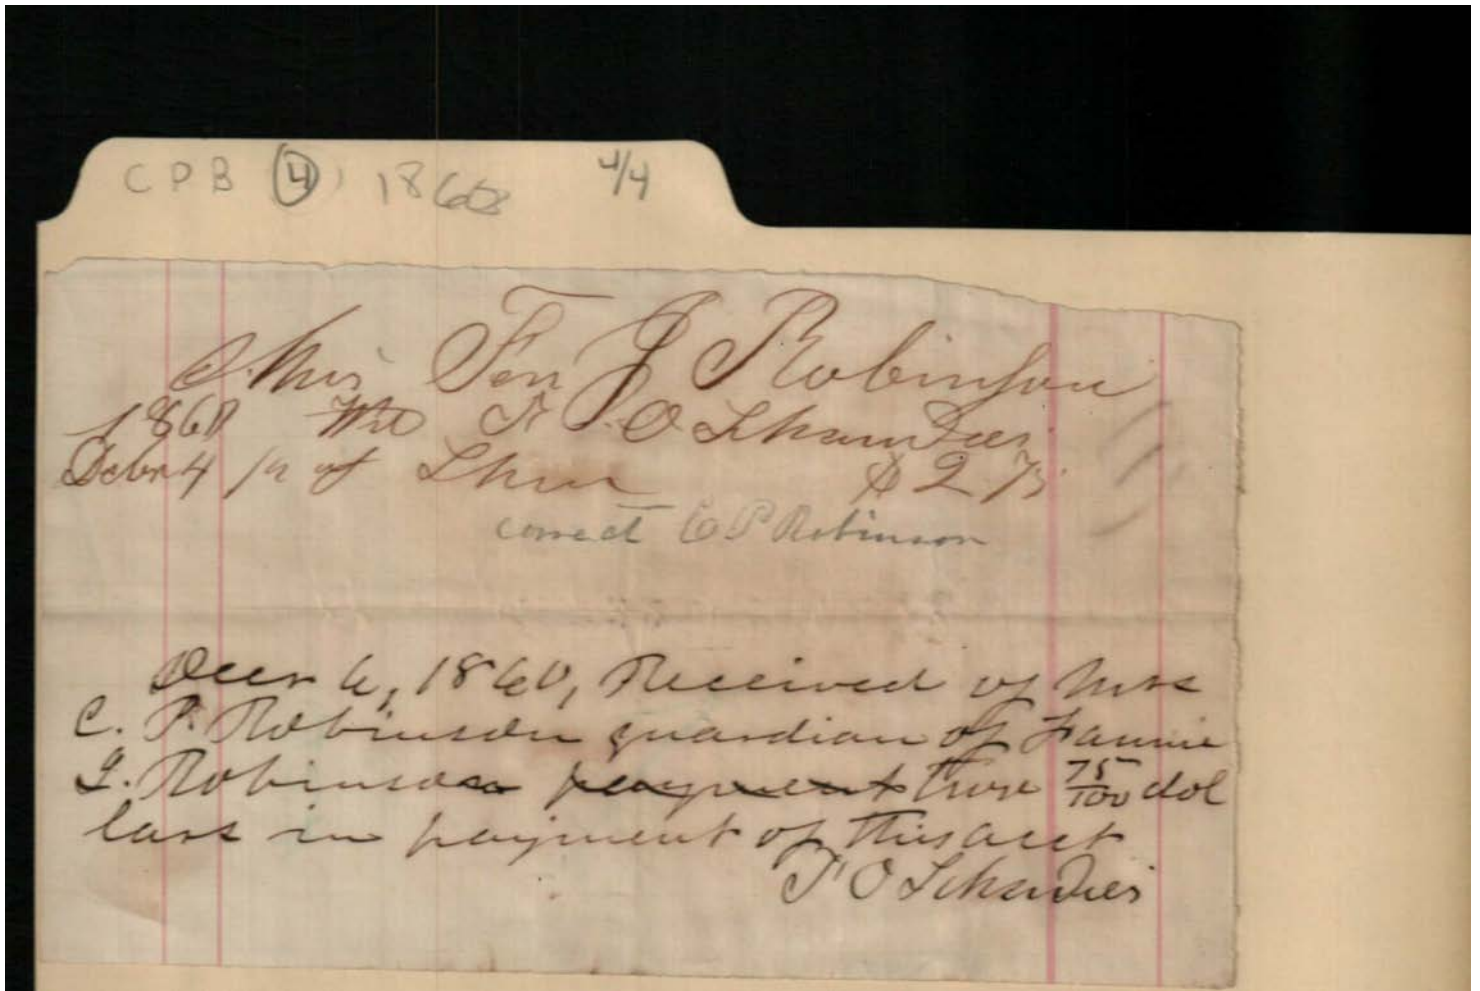 CPB (4) 1868 4/4
Miss Fan J Robinson
1868 To T. O Schaudies
Decbr 4 pr of Shoes $2.75
correct C P Robinson
Decr 6, 1860, Received of Mrs
C. P. Robinson guardian of Fannie
J. Robinson payment two 75/100 dol
lars in payment of this acct
T O Schaudies